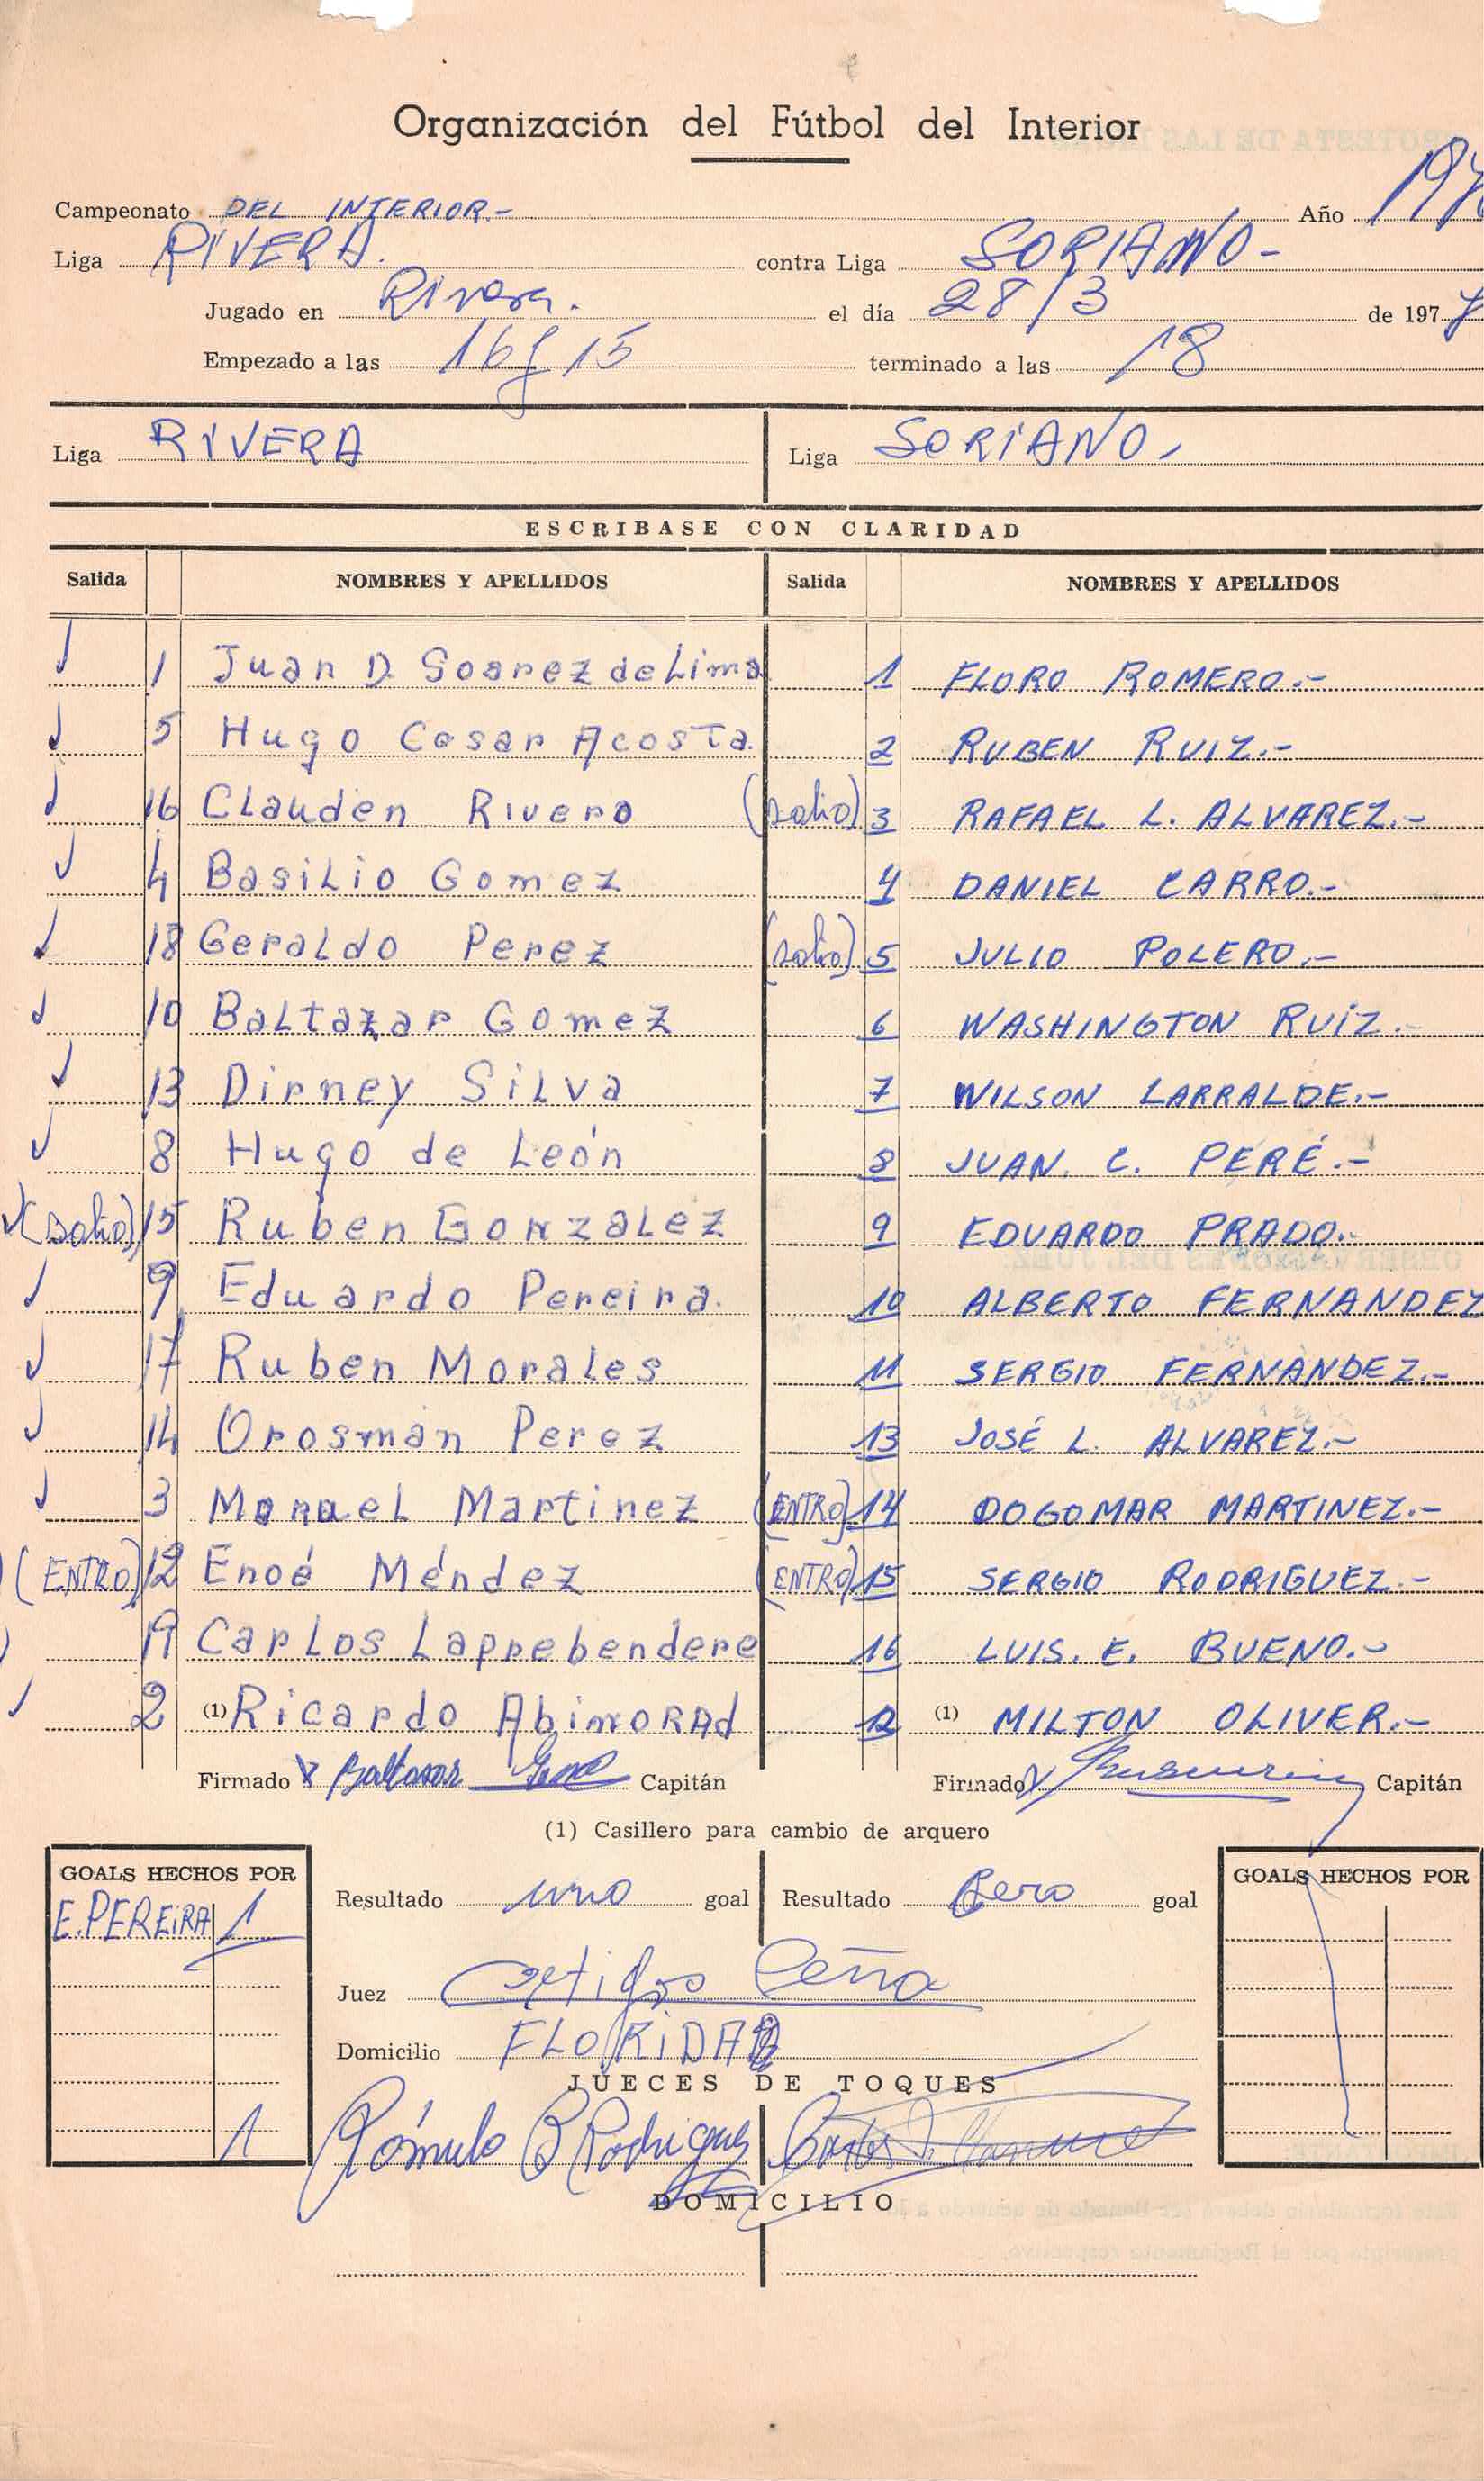 Organización del Fútbol del Interior
Campeonato DEL INTERIOR.- Año 197
Liga RIVERA. contra Liga SORIANO-
Jugado en Rivera. el día 28/3 de 197
Empezado a las 16 y 15 terminado a las 18
Liga RIVERA Liga SORIANO.
ESCRIBASE CON CLARIDAD
Salida NOMBRES Y APELLIDOS Salida NOMBRES Y APELLIDOS
1 Juan D. Soarez de Lima 1 FLORO ROMERO.-
5 Hugo Cesar Acosta. 2 RUBEN RUIZ.-
16 Clauden Rivero (salio) 3 RAFAEL L. ALVAREZ.-
4 Basilio Gomez 4 DANIEL CARRO.-
18 Geraldo Perez (salio) 5 JULIO POLERO.-
10 Baltazar Gomez 6 WASHINGTON RUIZ.-
13 Dirney Silva 7 WILSON LARRALDE.-
8 Hugo de León 8 JUAN. C. PERÉ.-
(salio) 15 Ruben Gonzalez 9 EDUARDO PRADO.-
9 Eduardo Pereira. 10 ALBERTO FERNANDEZ
17 Ruben Morales 11 SERGIO FERNANDEZ.-
14 Orosmán Perez 13 JOSÉ L. ALVAREZ.-
3 Manuel Martinez (ENTRO) 14 DOGOMAR MARTINEZ.-
(ENTRO) 12 Enoé Méndez (ENTRO) 15 SERGIO RODRIGUEZ.-
19 Carlos Larrebendere 16 LUIS. E. BUENO.-
2 (1) Ricardo Abimorad 12 (1) MILTON OLIVER.-
Firmado Baltasar Capitán Firmado Capitán
(1) Casillero para cambio de arquero
GOALS HECHOS POR GOALS HECHOS POR
E. PEREIRA 1 Resultado uno goal Resultado Cero goal
Juez Artigas Peña
Domicilio FLORIDA
JUECES DE TOQUES
1 Rómulo B Rodriguez Carlos
DOMICILIO